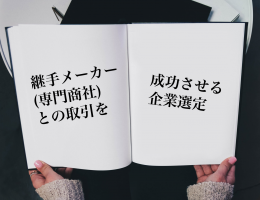 継手メーカー
(専門商社)
との取引を
成功させる
企業選定